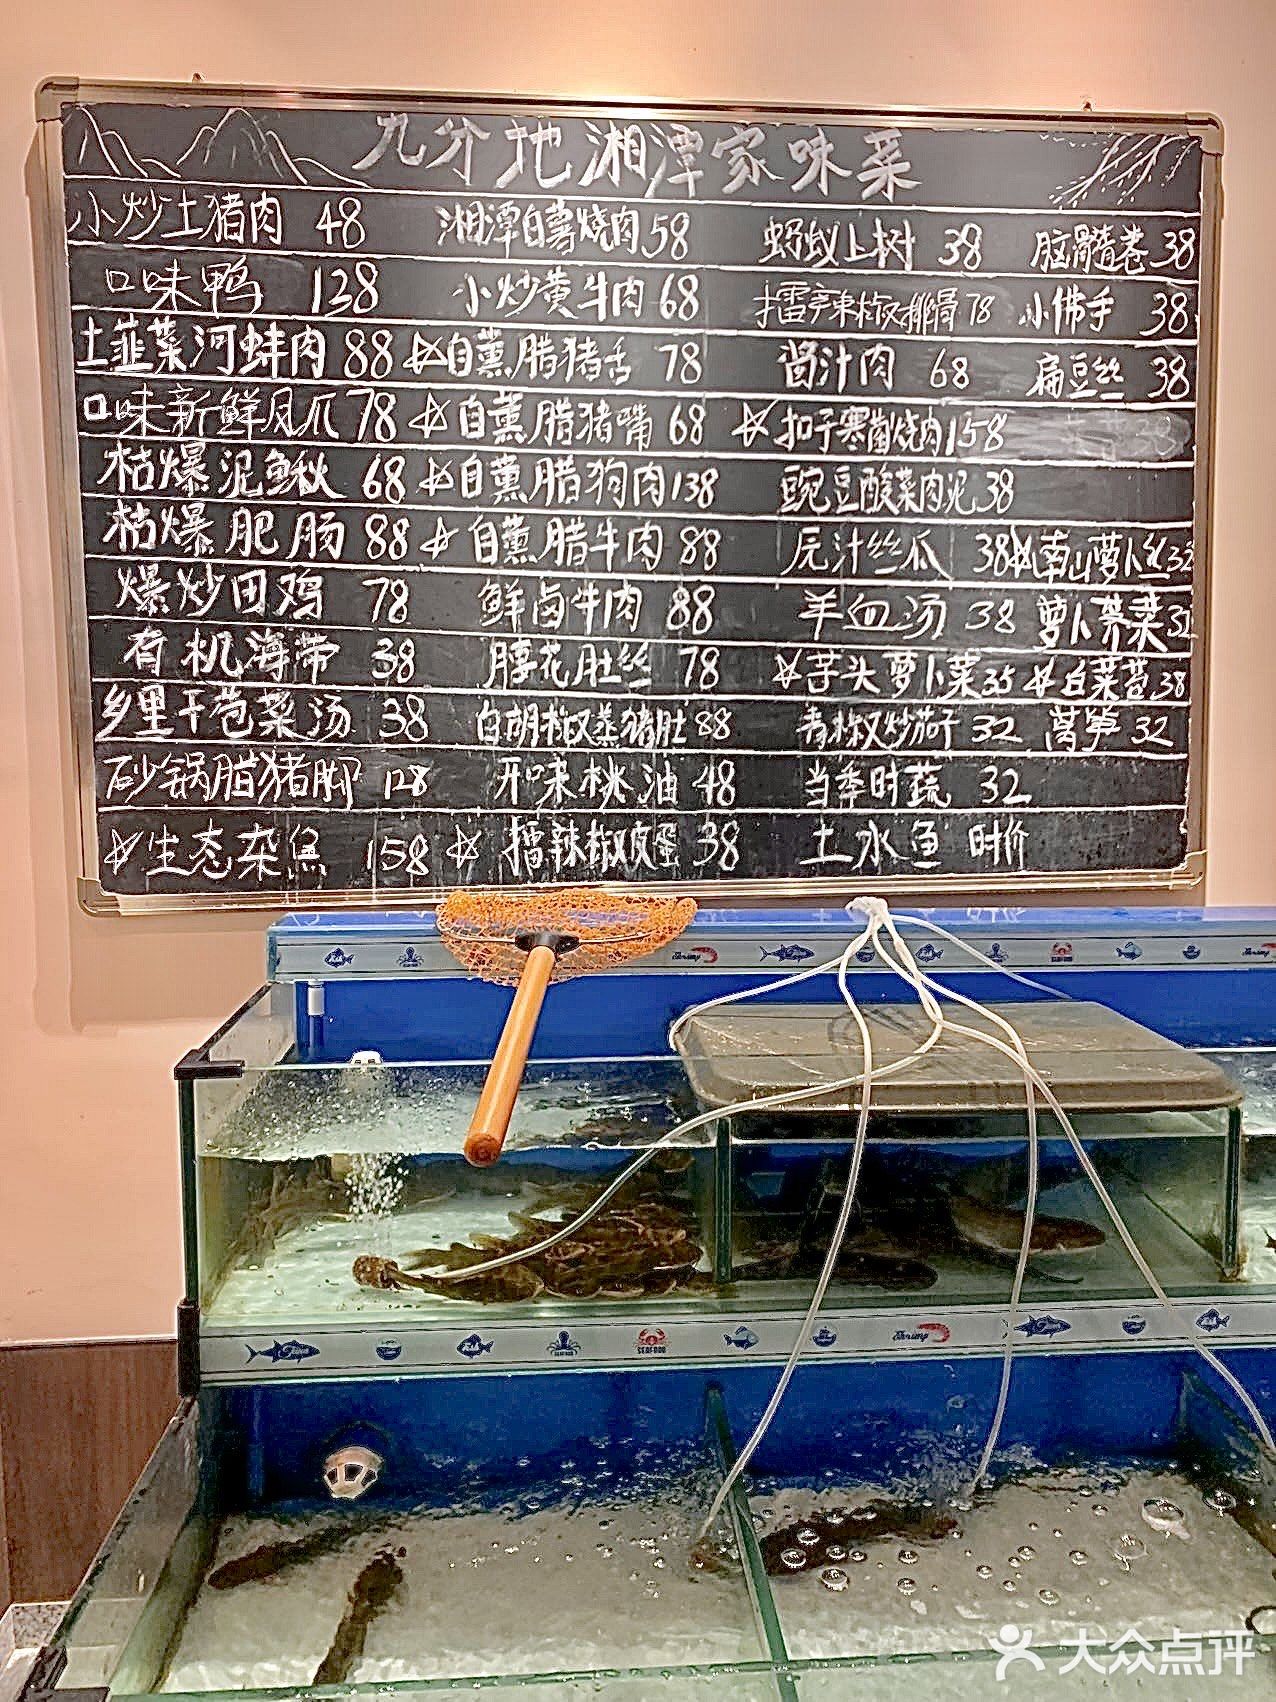 九分地湘潭家味菜
小炒土猪肉 48 湘潭白薯烧肉 58 蚂蚁上树 38 脑髓卷 38
口味鸭 138 小炒黄牛肉 68 擂辣椒排骨 78 小佛手 38
土韮菜河蚌肉 88 ☆自薰腊猪舌 78 酱汁肉 68 扁豆丝 38
口味新鲜凤爪 78 ☆自薰腊猪嘴 68 ☆扣子寒菌烧肉 158 38
枯爆泥鳅 68 ☆自薰腊狗肉 138 豌豆酸菜肉泥 38
枯爆肥肠 88 ☆自薰腊牛肉 88 元汁丝瓜 38 ☆南山萝卜丝 32
爆炒田鸡 78 鲜卤牛肉 88 羊血汤 38 萝卜荠菜 32
有机海带 38 腰花肚丝 78 ☆苦头萝卜菜 35 ☆白菜苞 38
乡里干苞菜汤 38 白胡椒蒸猪肚 88 青椒炒茄子 32 莴笋 32
砂锅腊猪脚 128 开味桃油 48 当季时蔬 32
☆生态杂鱼 158 ☆擂辣椒皮蛋 38 土水鱼 时价
Shrimp SEAFOOD
Tuna SEAFOOD Shrimp Tuna
大众点评